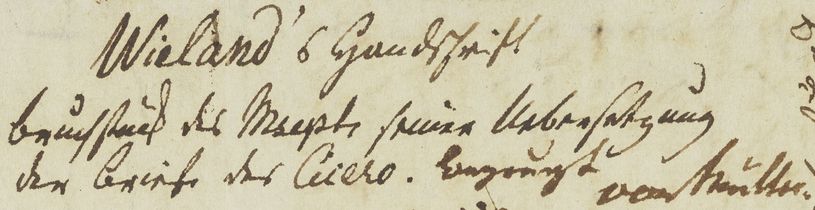 Wieland's Handschrift
bruchstück des Mscpts seiner Uebersetzung
der Briefe des Cicero. bezeugt von Müller.